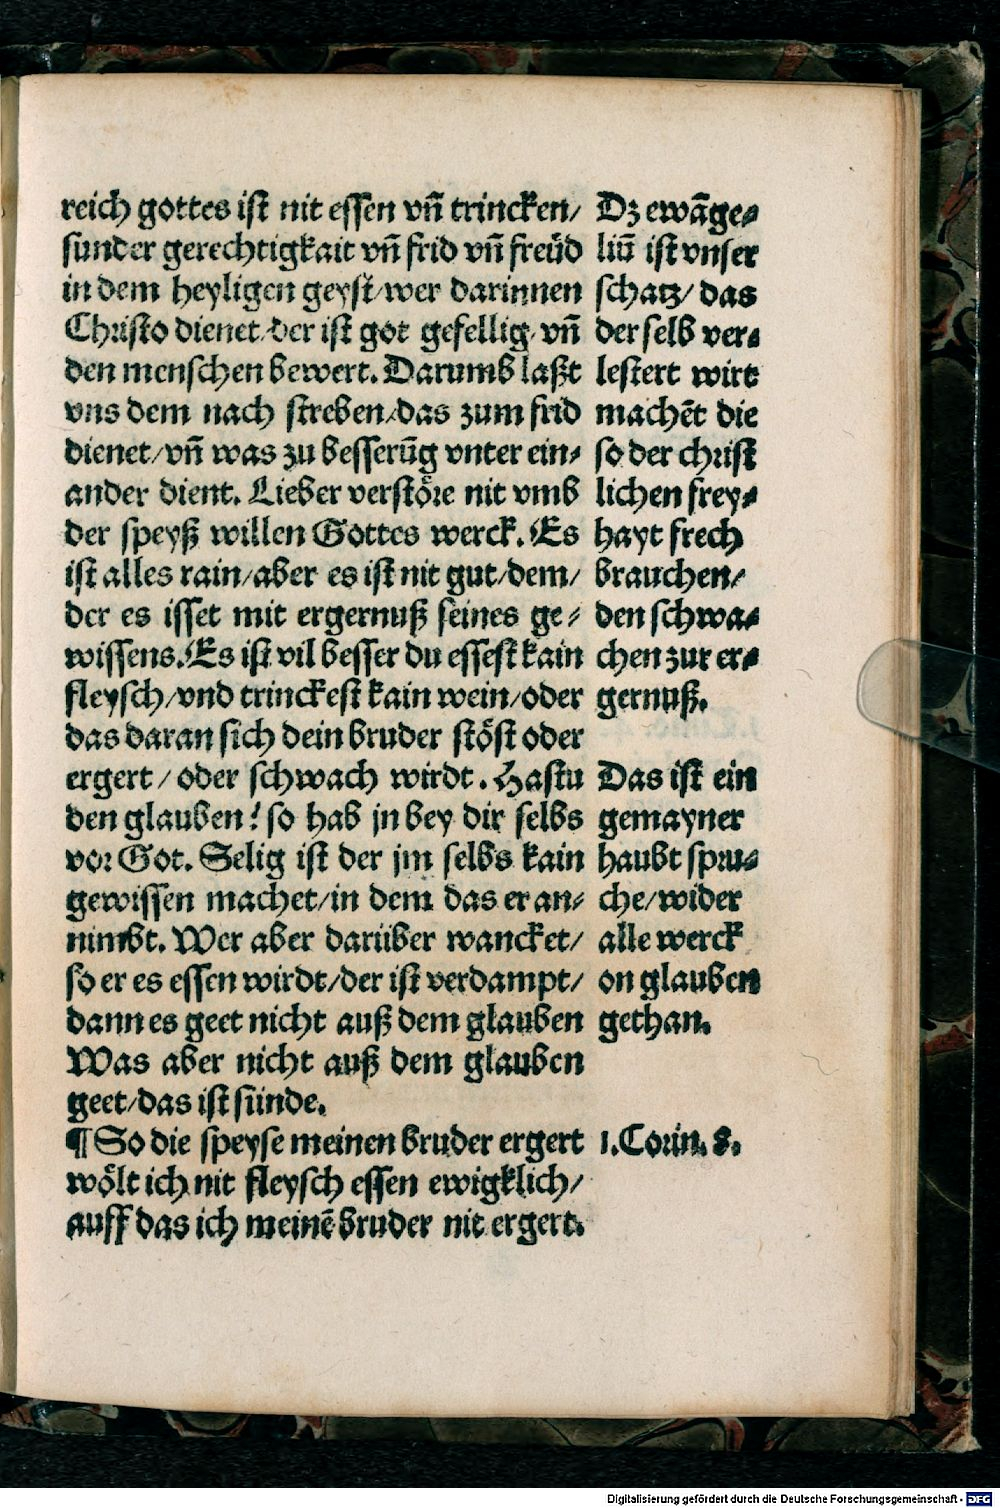 reich gottes ist nit essen vñ trincken/
sunder gerechtigkait vñ frid vñ freüd
in dem heyligen geyst/wer darinnen
Christo dienet/der ist got gefellig/vñ
den menschen bewert. Darumb laßt
vns dem nach streben/das zum frid
dienet/vñ was zu besserūg vnter ein⸗
ander dient. Lieber verstöre nit vmb
der speyß willen Gottes werck. Es
ist alles rain/aber es ist nit gut/dem/
der es isset mit ergernuß seines ge⸗
wissens. Es ist vil besser du essest kain
fleysch/vnd trinckest kain wein/oder
das daran sich dein bruder stöst oder
ergert/oder schwach wirdt. Hastu
den glauben? so hab jn bey dir selbs
vor Got. Selig ist der jm selbs kain
gewissen machet/in dem das er an⸗
nimbt. Wer aber darüber wancket/
so er es essen wirdt/der ist verdampt/
dann es geet nicht auß dem glauben
Was aber nicht auß dem glauben
geet/das ist sünde.
¶ So die speyse meinen bruder ergert
wölt ich nit fleysch essen ewigklich/
auff das ich meinē bruder nit ergert.
Dz ewāge⸗
liū ist vnser
schatz/das
der selb ver⸗
lestert wirt
machēt die
so der christ
lichen frey⸗
hayt frech
brauchen/
den schwa⸗
chen zur er⸗
gernuß.
Das ist ein
gemayner
haubt spru⸗
che/wider
alle werck
on glauben
gethan.
1. Corin. 8.
Digitalisierung gefördert durch die Deutsche Forschungsgemeinschaft - DFG